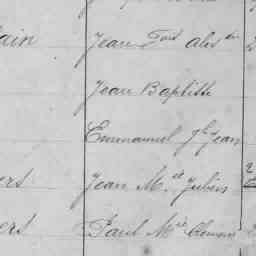 ain Jean Fois alex dre 2
Jean Baptiste
Emmanuel Jh Jean
ers Jean Mst Julien 2
ers Paul Mst Clement 2